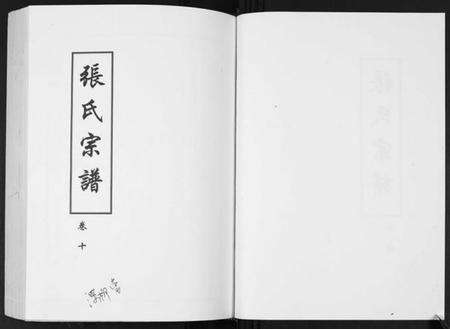 張氏宗譜
卷十